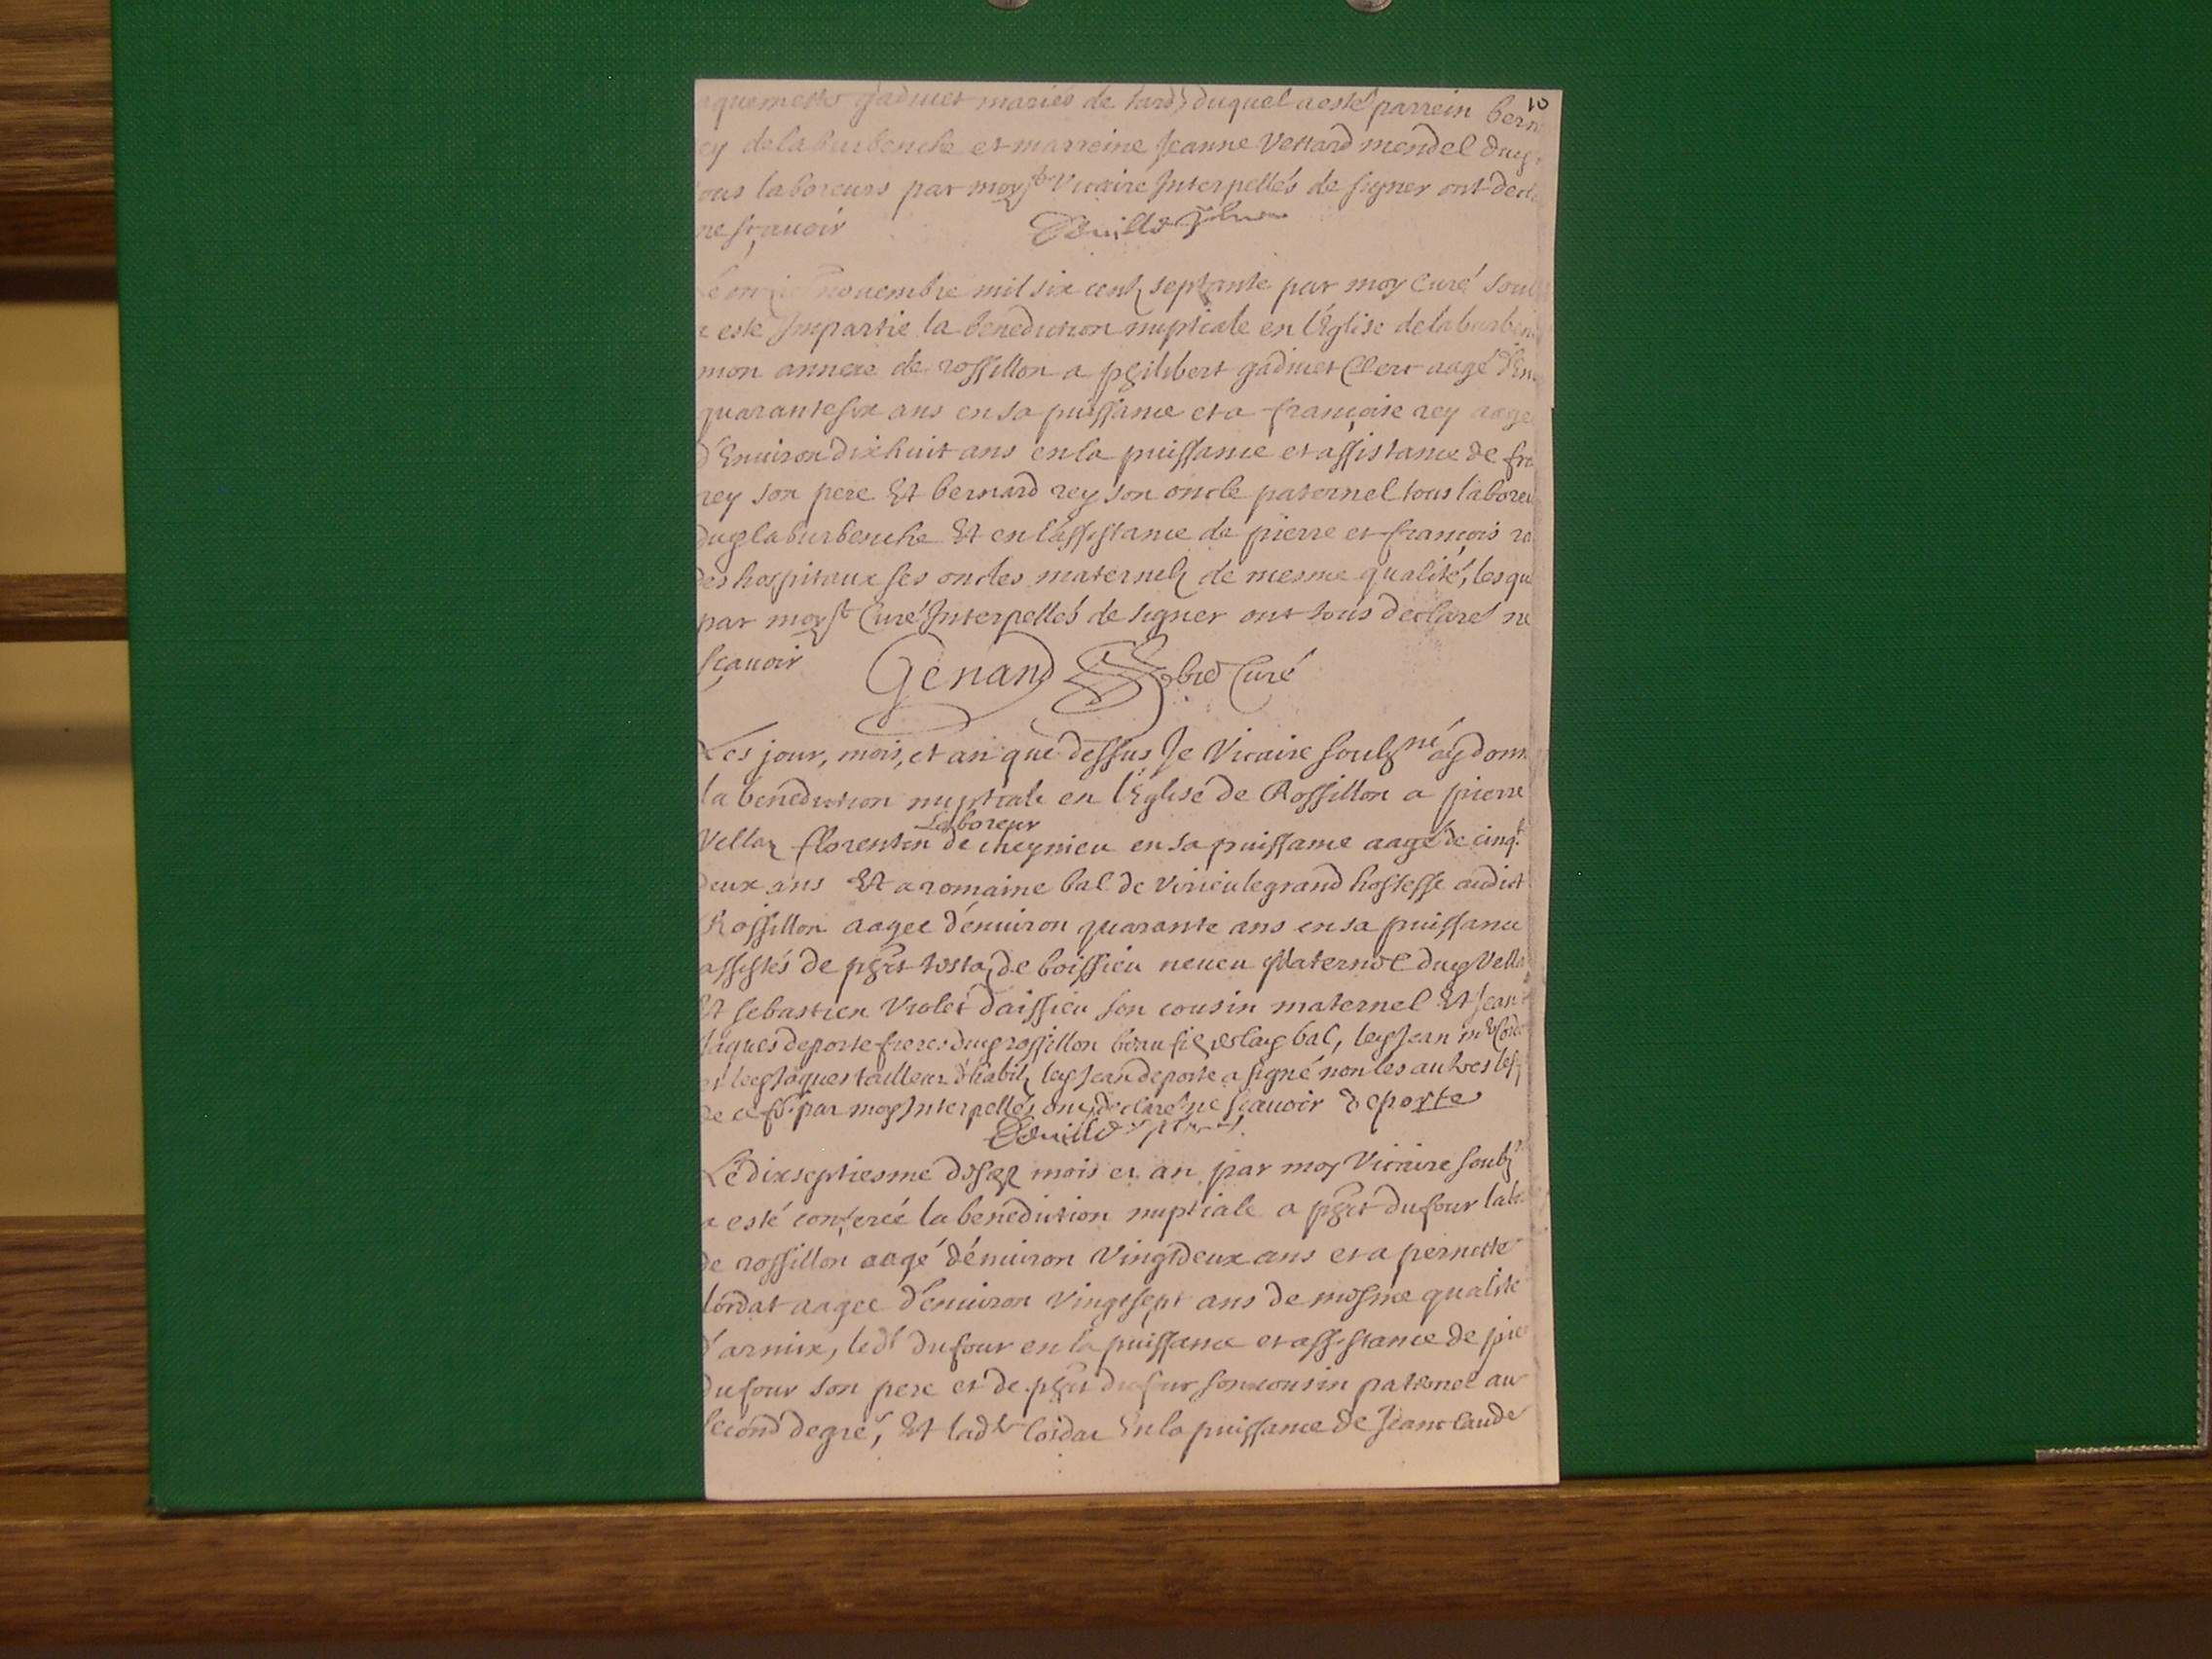 10
gadiuet mariés de duquel a esté parrein bern
ey de la burbenche et marreine Jeanne Vettard mendel dug
ous laboreurs par moy st Vicaire Interpellés de signer ont decla
ne sçauoir
novembre mil six centz septante par moy Curé soub
a este Impartie la benediction nuptiale en l'Eglise de la burben
mon annexe de rossillon a philibert gadiuet Clerc aagé d'En
quarante six ans en sa puissance et a françoise rey aage
d'Enuiron dixhuit ans en la puissance et assistance de fra
rey son pere Et bernard rey son oncle paternel tous labore
dug la burbenche Et en l'assistance de pierre et françois ra
des hospitaux ses oncles maternelz de mesme qualité, lesqu
par moy st Curé Interpellés de signer ont tous declaré ne
sçauoir Genand pbre Curé
Les jour, mois, et an que dessus Je Vicaire soulz né ay donn
la benediction nuptiale en l'Eglise de Rossillon a pierre
Laboreur
Vellaz florentin de cheynieu en sa puissance aagé de cinqt
deux ans Et a romaine bal de virieulegrand hostesse audict
Rossillon aagee d'enuiron quarante ans en sa puissance
assistés de phrt de boissieu neueu Maternel dug Vella
Et sebastien Violet d'aissieu son cousin maternel Et Jean
Jaques deporte freres dug rossillon bal, leg Jean
et leg Jaques tailleur d'habitz leg Jean deporte a signé non les autres
de ce par moy Interpellés ont declaré ne sçauoir deporte
Le dixseptiesme mois et an par moy Vicaire soubz
a esté conferée la benediction nuptiale a phrt dufour lab
de rossillon aagé d'enuiron Vingtdeux ans et a pernette
Cordat aagee d'enuiron Vingtsept ans de mesme qualité
d'armix, ledt dufour en la puissance et assistance de pie
dufour son pere et de phrt dufour son cousin paternel au
second degré, Et ladte Cordat En la puissance de Jean claude